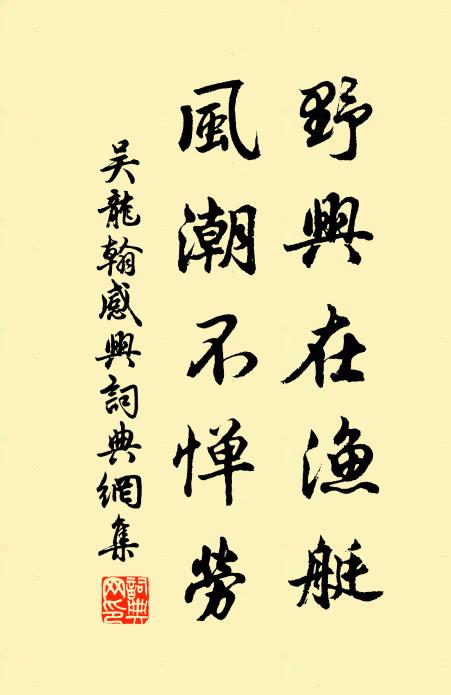 野興在漁艇
風潮不惮勞
吳龍翰感興詞典網集
詞典網印